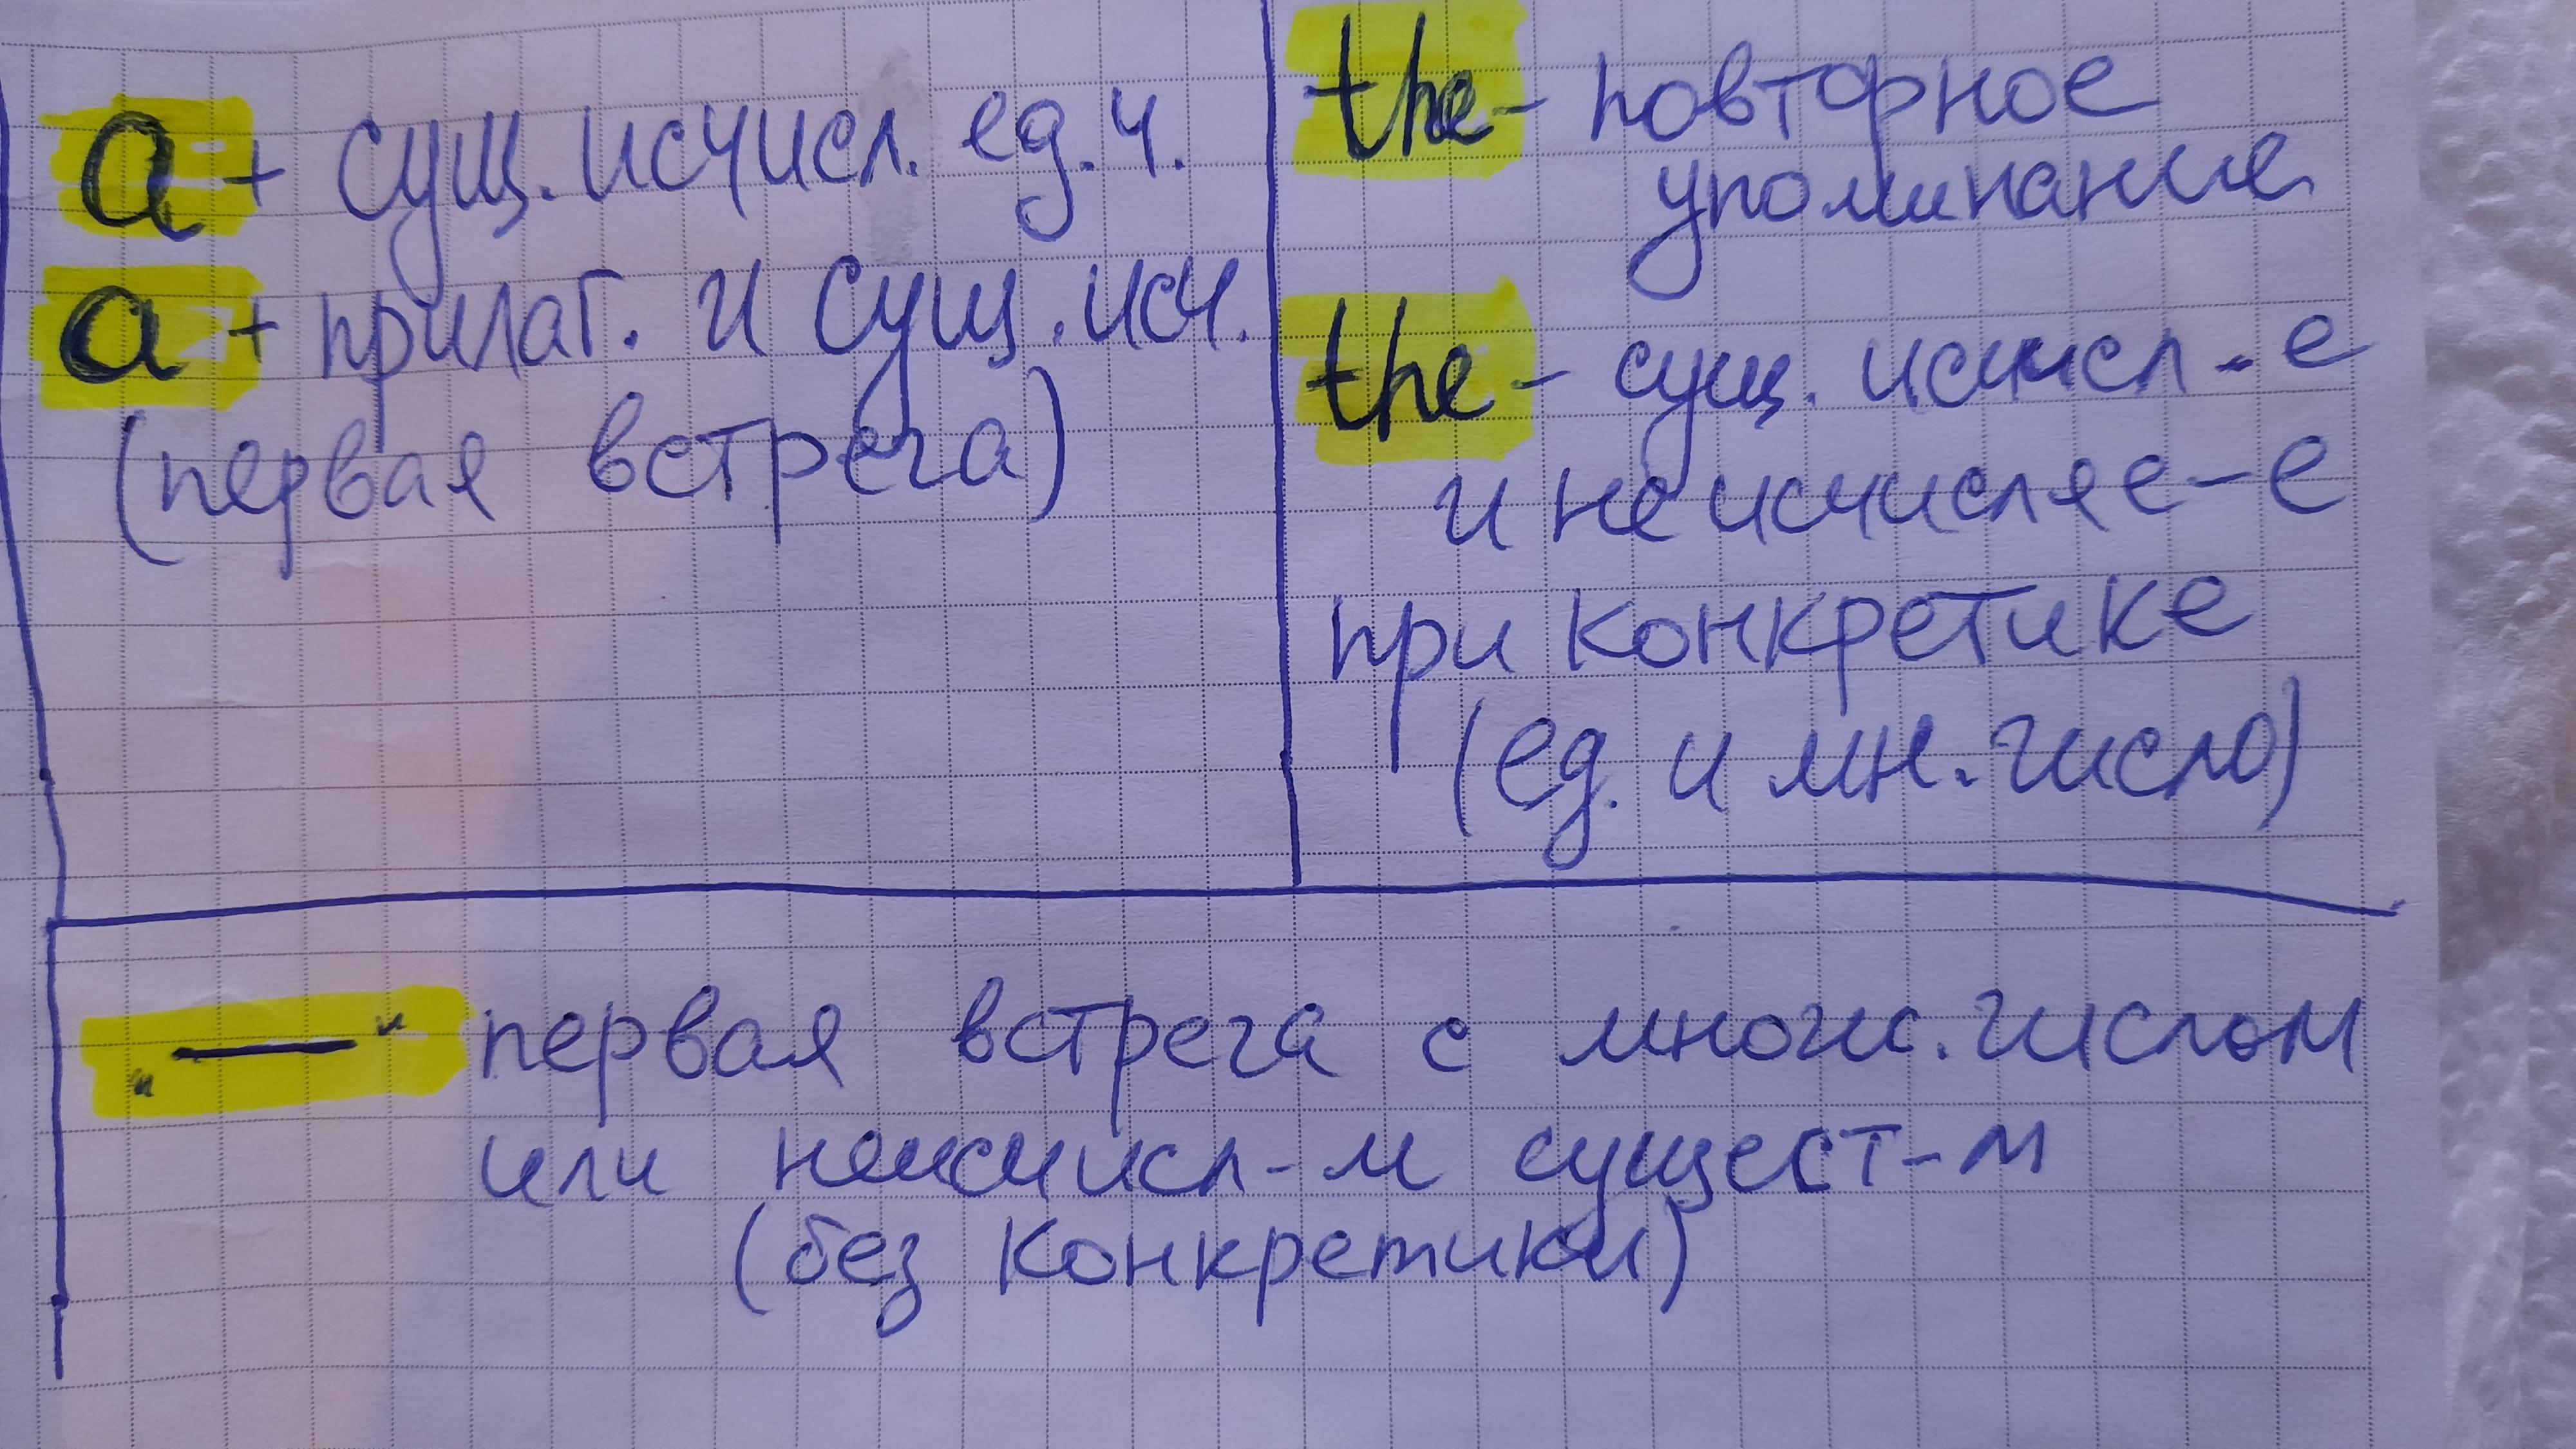 a + сущ. исчисл. ед. ч.
a + прилаг. и сущ. исч.
(первая встреча)
the - повторное
упоминание
the - сущ. исчисл-е
и неисчисляе-е
при конкретике
(ед. и мн. число)
„—" первая встреча с множ. числом
или неисчисл-м сущест-м
(без конкретики)